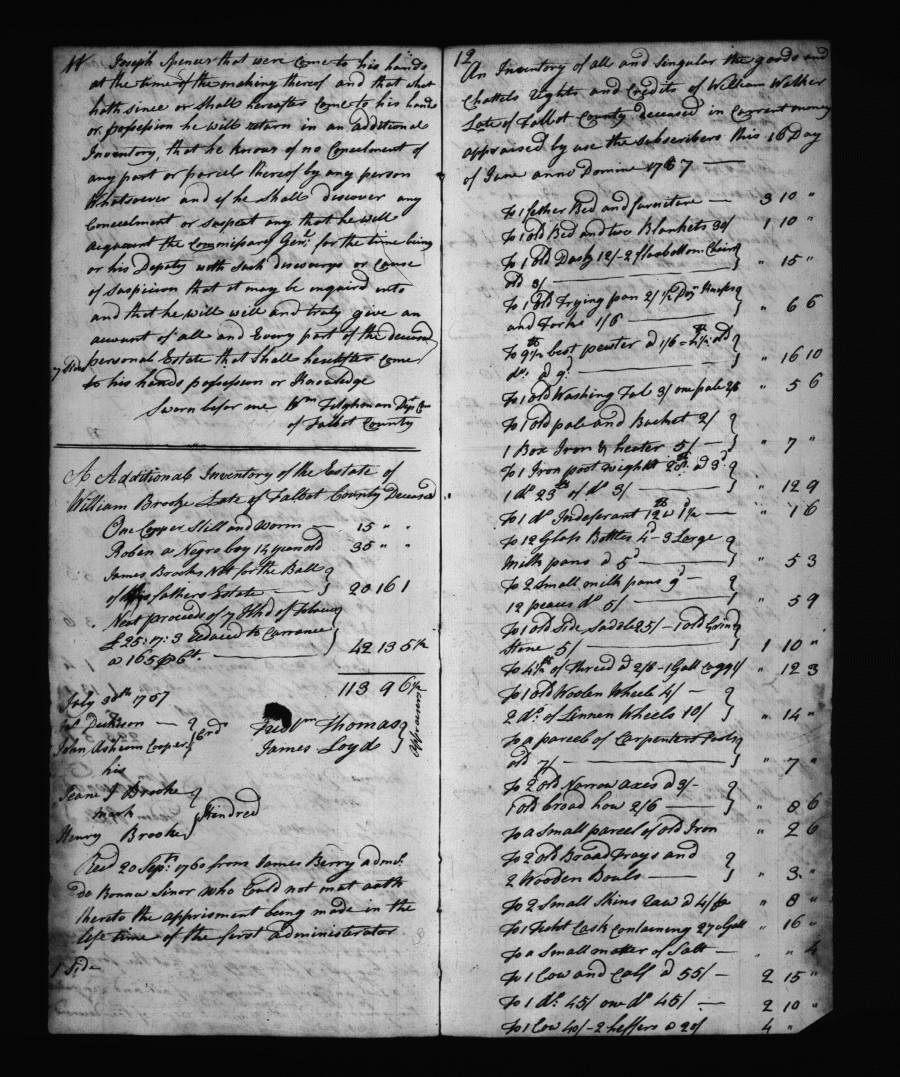 11
Joseph Spencer that were come to his hands
at the time of the making thereof and that what
hath since or shall hereafter come to his hands
or possession he will return in an additional
Inventory, that he knows of no Concealment of
any part or parcel thereof by any person
Whatsoever and if he shall discover any
Concealment or suspect any that he will
acquaint the Commissary Genl. for the time being
or his Deputy with such discoverys or Cause
of suspicion that it may be enquired into
and that he will well and truly give an
account of all and Every part of the deceased
personal Estate that shall hereafter come
7 Sides
to his hands possession or Knowledge
Sworn before me Wm Tilghman Dy Com
of Talbot County
A Additional Inventory of the Estate of
William Brooke Late of Talbot County Deceased
One Copper Still and Worm — 15 " "
Robin a Negro boy 14 years old 35 " "
James Brooks Note for the Ball
of his fathers Estate — } 20 16 1
Neat proceeds of 7 Hhd of Tobacco
£ 25:17:3 Reduced to Currance
a 165 p Ct. — } 42 13 5 1/2
113 9 6 1/2
July 30th 1767
Dickison — } Crds
John Cooper
Thomas } Appraisers
James Loyd
his
Jeane J Brooke
mark } Kindred
Henry Brooke
Recd 20 Sept. 1760 from James Berry admr.
De Bonna Sinor who could not mak oath
thereto the apprisment being made in the
life time of the first administerator
1 Side
12
An Inventory of all and Singular the goods and
Chattels rights and Credits of William Walker
Late of Talbot County deceased in Current money
appraised by use the subscribers this 16 Day
of June anno Domine 1767 —
To 1 fether Bed and furniture — 3 10 "
To 1 old Bed and two Blankets 30/ 1 10 "
To 1 old Desk 12/ - 2 flagbottom Chairs
old 3/ — } " 15 "
To 1 old Frying pan 2/ 1/2 Dozn Knifes
and Forks 1/6 — } " 6 6
To 9 1/2 lb best peuter a 1/6 - 4 1/2 lb old
do. a 9d. — } " 16 10
To 1 old Washing Tub 3/ one pale 2/6 " 5 6
To 1 old pale and Bucket 2/
1 Box Iron & heeter 5/ — } " 7 "
To 1 Iron poot weight 28lb a 3d
1 do 23lb of do 3/ — } " 12 9
To 1 do Indeferant 12lb a 1 1/2 — " 1 6
To 12 Glass Bottles 4d - 3 Large
Milk pans a 5d — } " 5 3
To 2 Small milk pans 9d —
12 peaces do 5/ — } " 5 9
To 1 old side Saddle 25/ - 1 old Grind
Stone 5/ — } 1 10 "
To 4 1/2 lb of thred a 2/6 - 1 Gall 1/ " 12 3
To 1 old Woolen Wheele 4/ —
2 do. of Linnen Wheels 10/ } " 14 "
To a parcel of Carpenters Tools
old 7/ — } " 7 "
To 2 old Narrow axes a 3/ -
1 old broad how 2/6 — } " 8 6
To a Small parcel of old Iron " 2 6
To 2 old Bread Trays and
2 Wooden Bouls — } " 3 "
To 2 Small Skins Raw a 4/ " 8 "
To 1 Cask Containing 27 Gall " 16 "
To a Small matter of Salt — " " 4
To 1 Cow and Calf a 55/ — 2 15 "
To 1 do. 45/ one do 45/ — 2 10 "
To 1 Cow 40/ - 2 heffers a 20/ 4 "